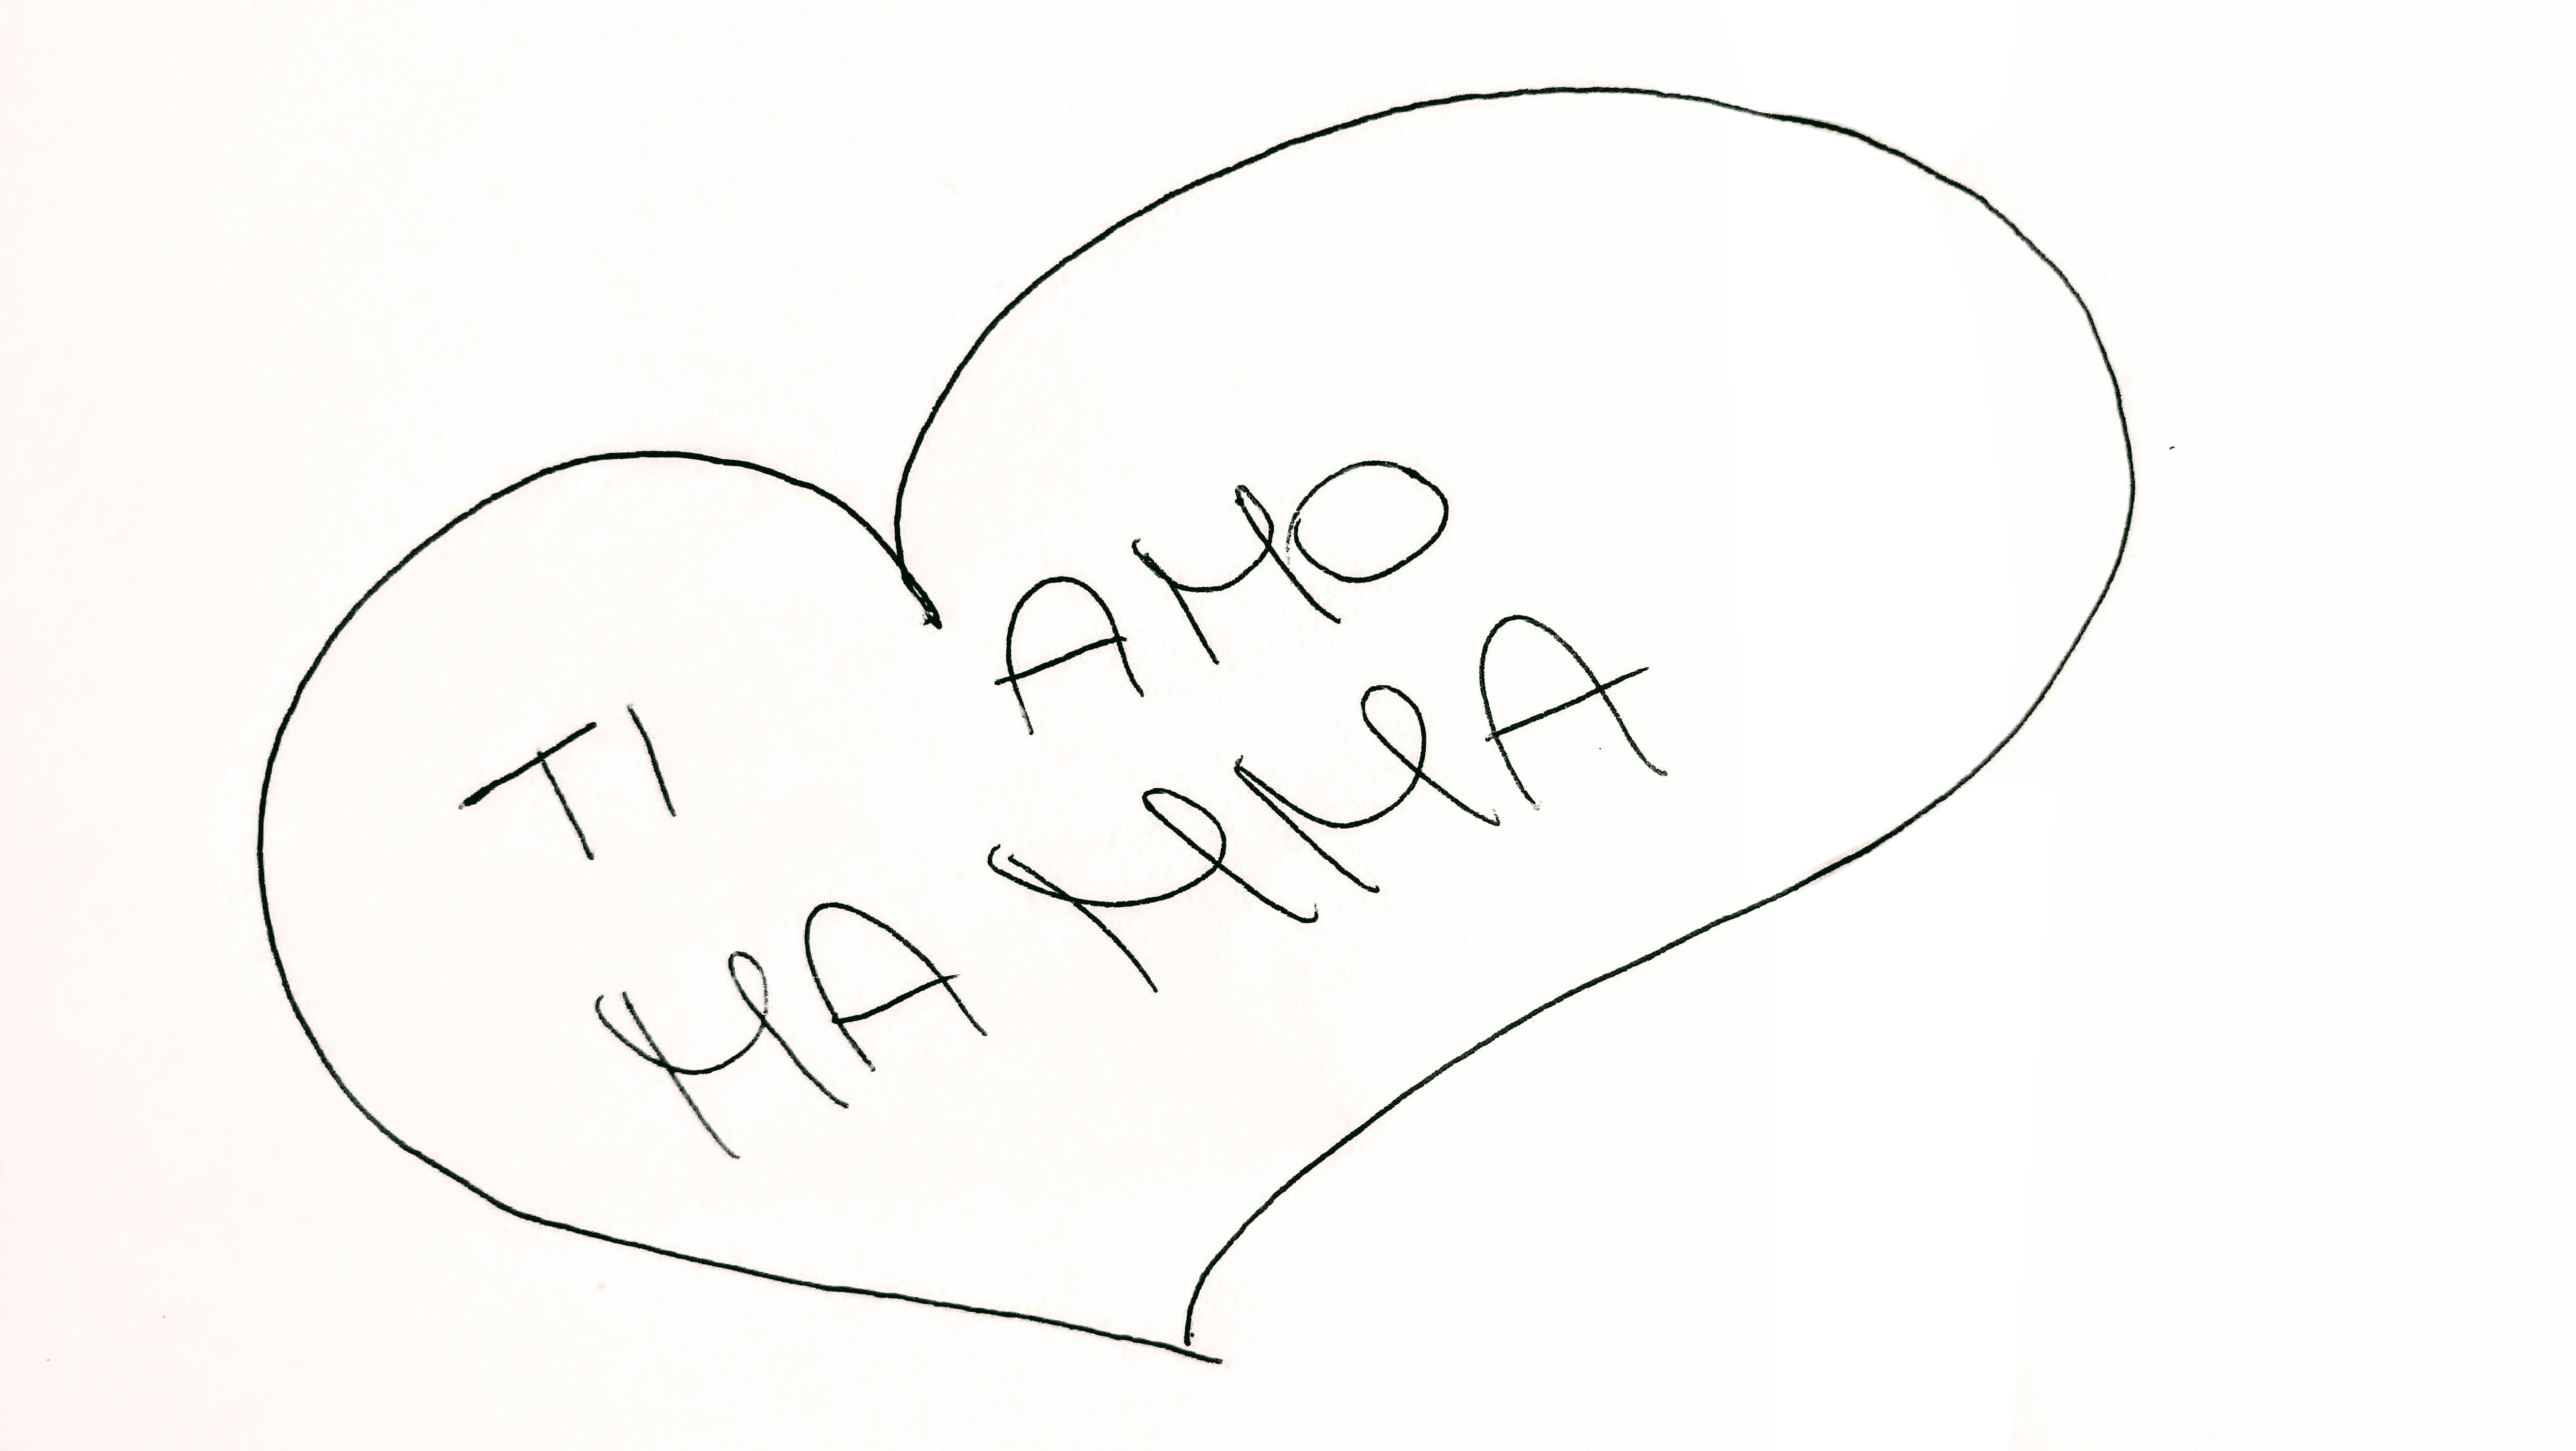 TI AMO
MAMMA